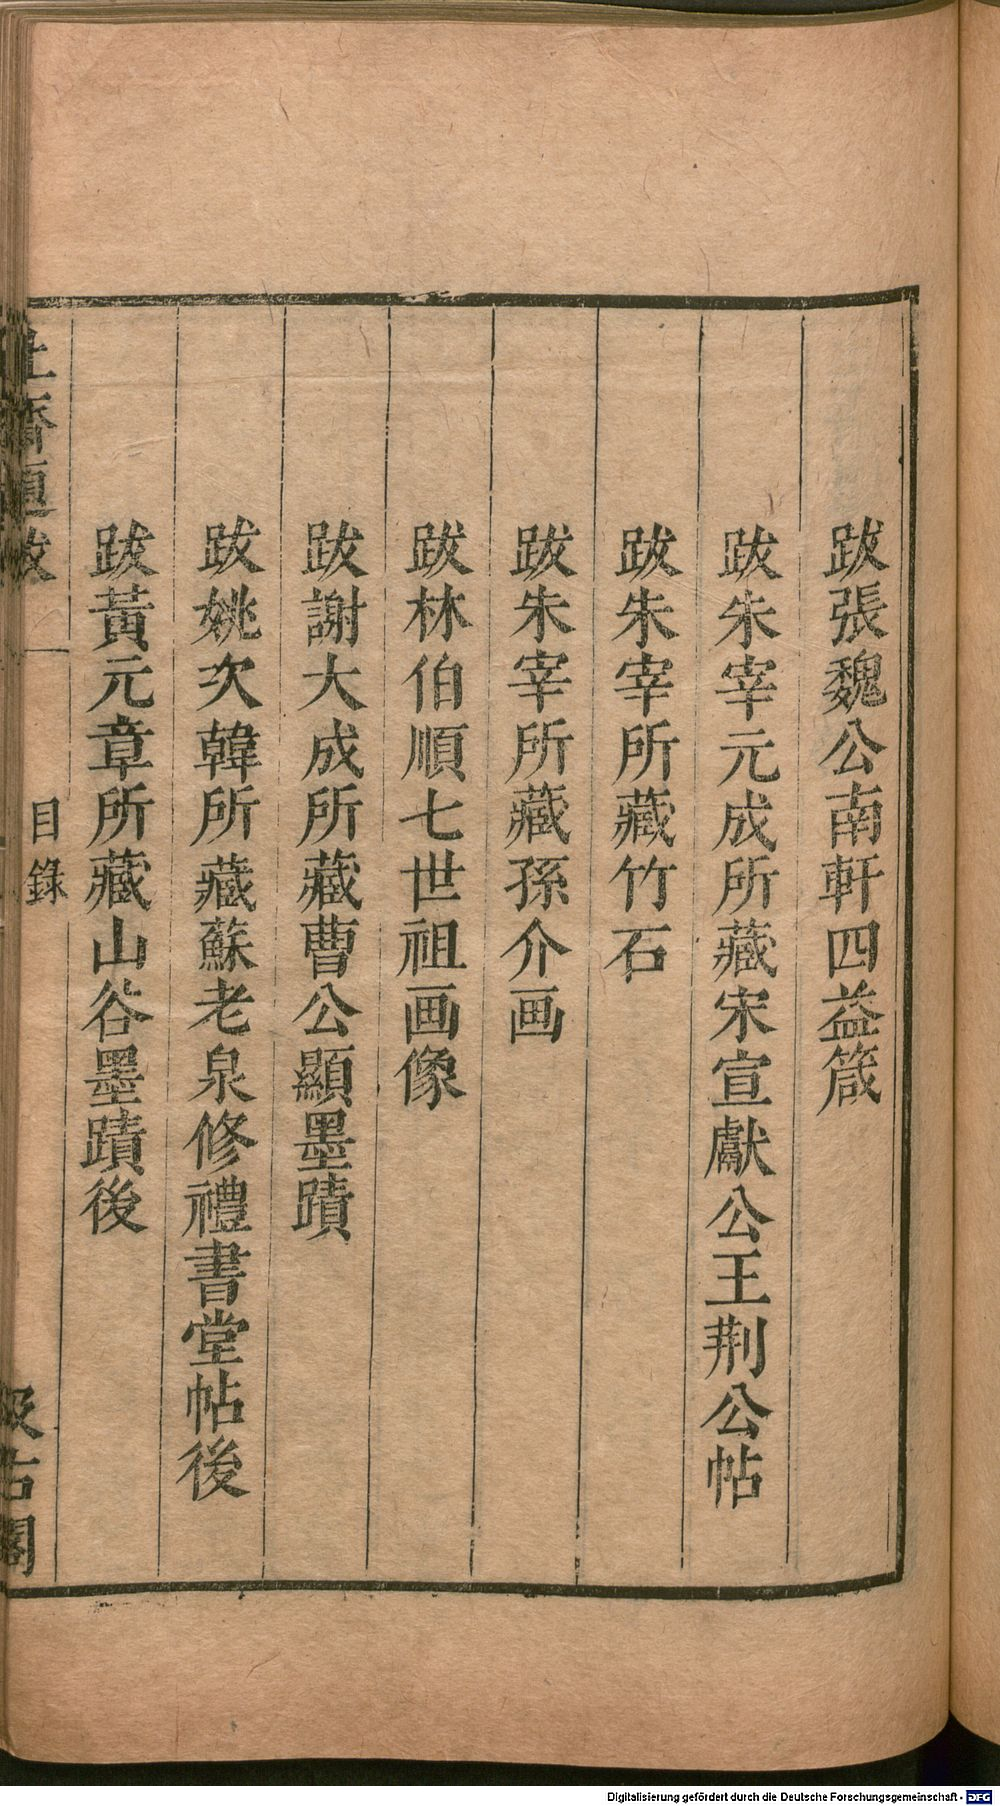 跋張魏公南軒四益箴
跋朱宰元成所藏宋宣獻公王荆公帖
跋朱宰所藏竹石
跋朱宰所藏孫介画
跋林伯順七世祖画像
跋謝大成所藏曹公顯墨蹟
跋姚次韓所藏蘇老泉修禮書堂帖後
跋黃元章所藏山谷墨蹟後
止齋題跋 一 目錄 汲古閣
Digitalisierung gefördert durch die Deutsche Forschungsgemeinschaft - DFG